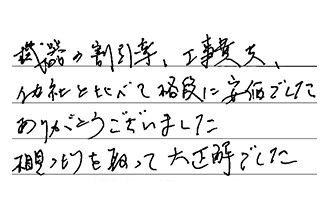 機器の割引率、工事費夫、
他社と比べて格段に安価でした
ありがとうございました
相見つもりを取って大正解でした